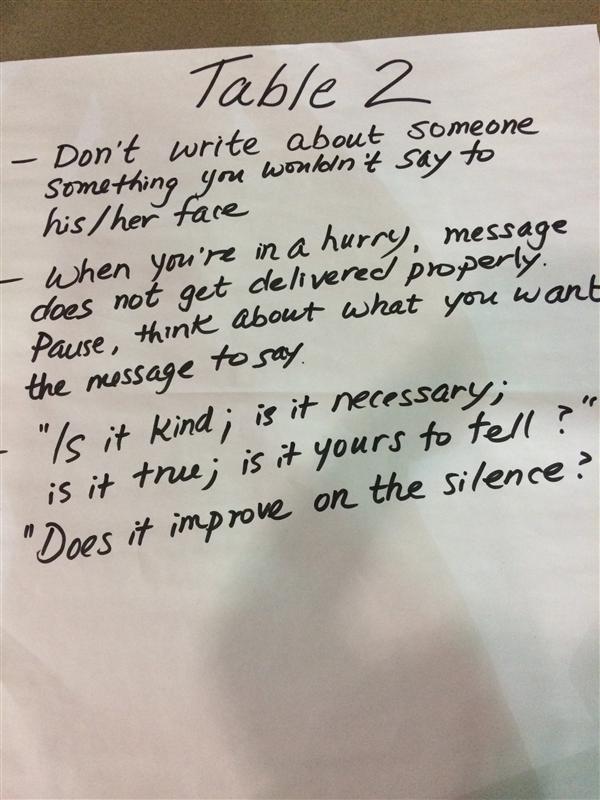 Table 2
– Don't write about someone
something you wouldn't say to
his/her face
– When you're in a hurry, message
does not get delivered properly.
Pause, think about what you want
the message to say.
- "Is it kind; is it necessary;
is it true; is it yours to tell?"
"Does it improve on the silence?